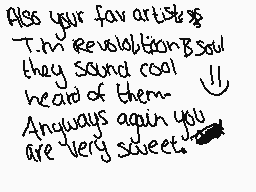 Also your fav artists
T.M Revolution B soul
they sound cool
heard of them
Anyways again you
are very sweet.